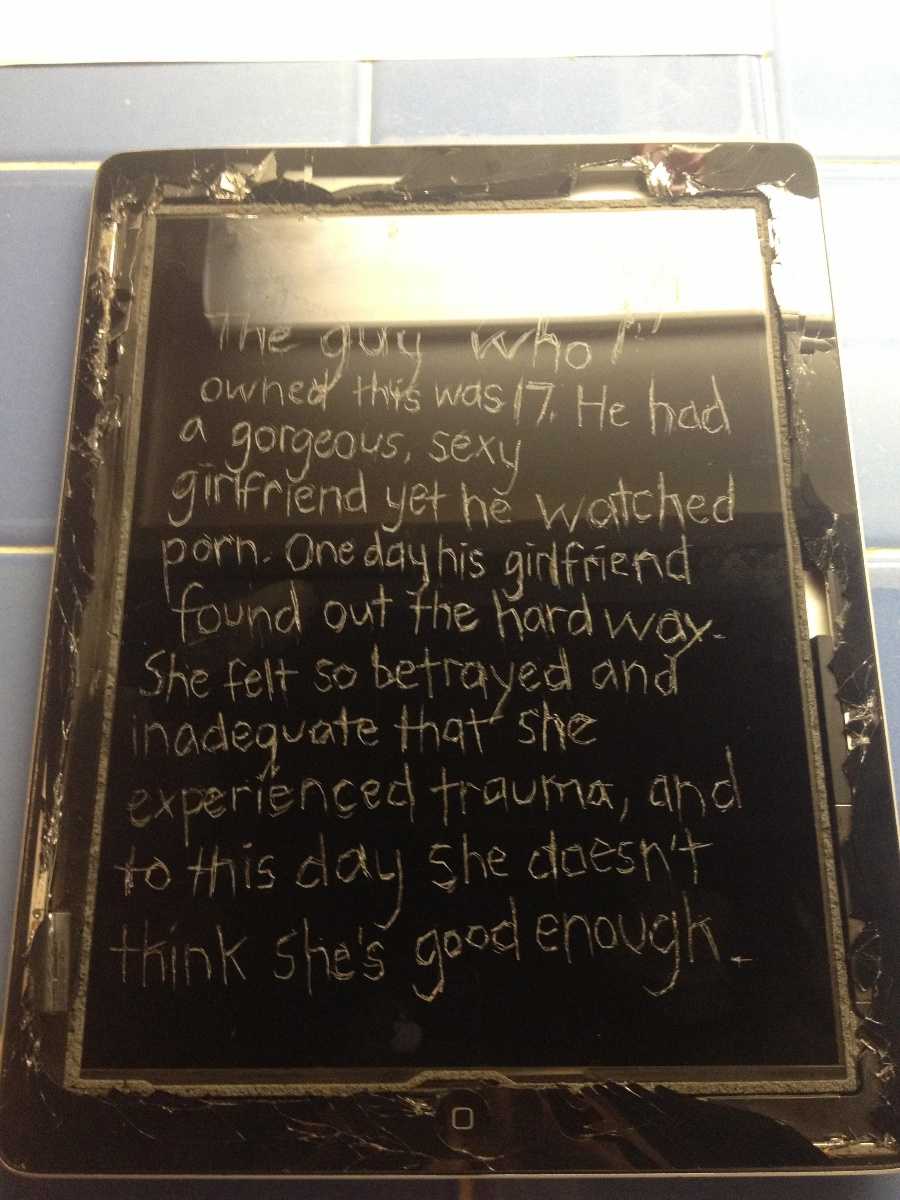 The guy who
owned this was 17. He had
a gorgeous, sexy
girlfriend yet he watched
porn. One day his girlfriend
found out the hard way.
She felt so betrayed and
inadequate that she
experienced trauma, and
to this day she doesn't
think she's good enough.